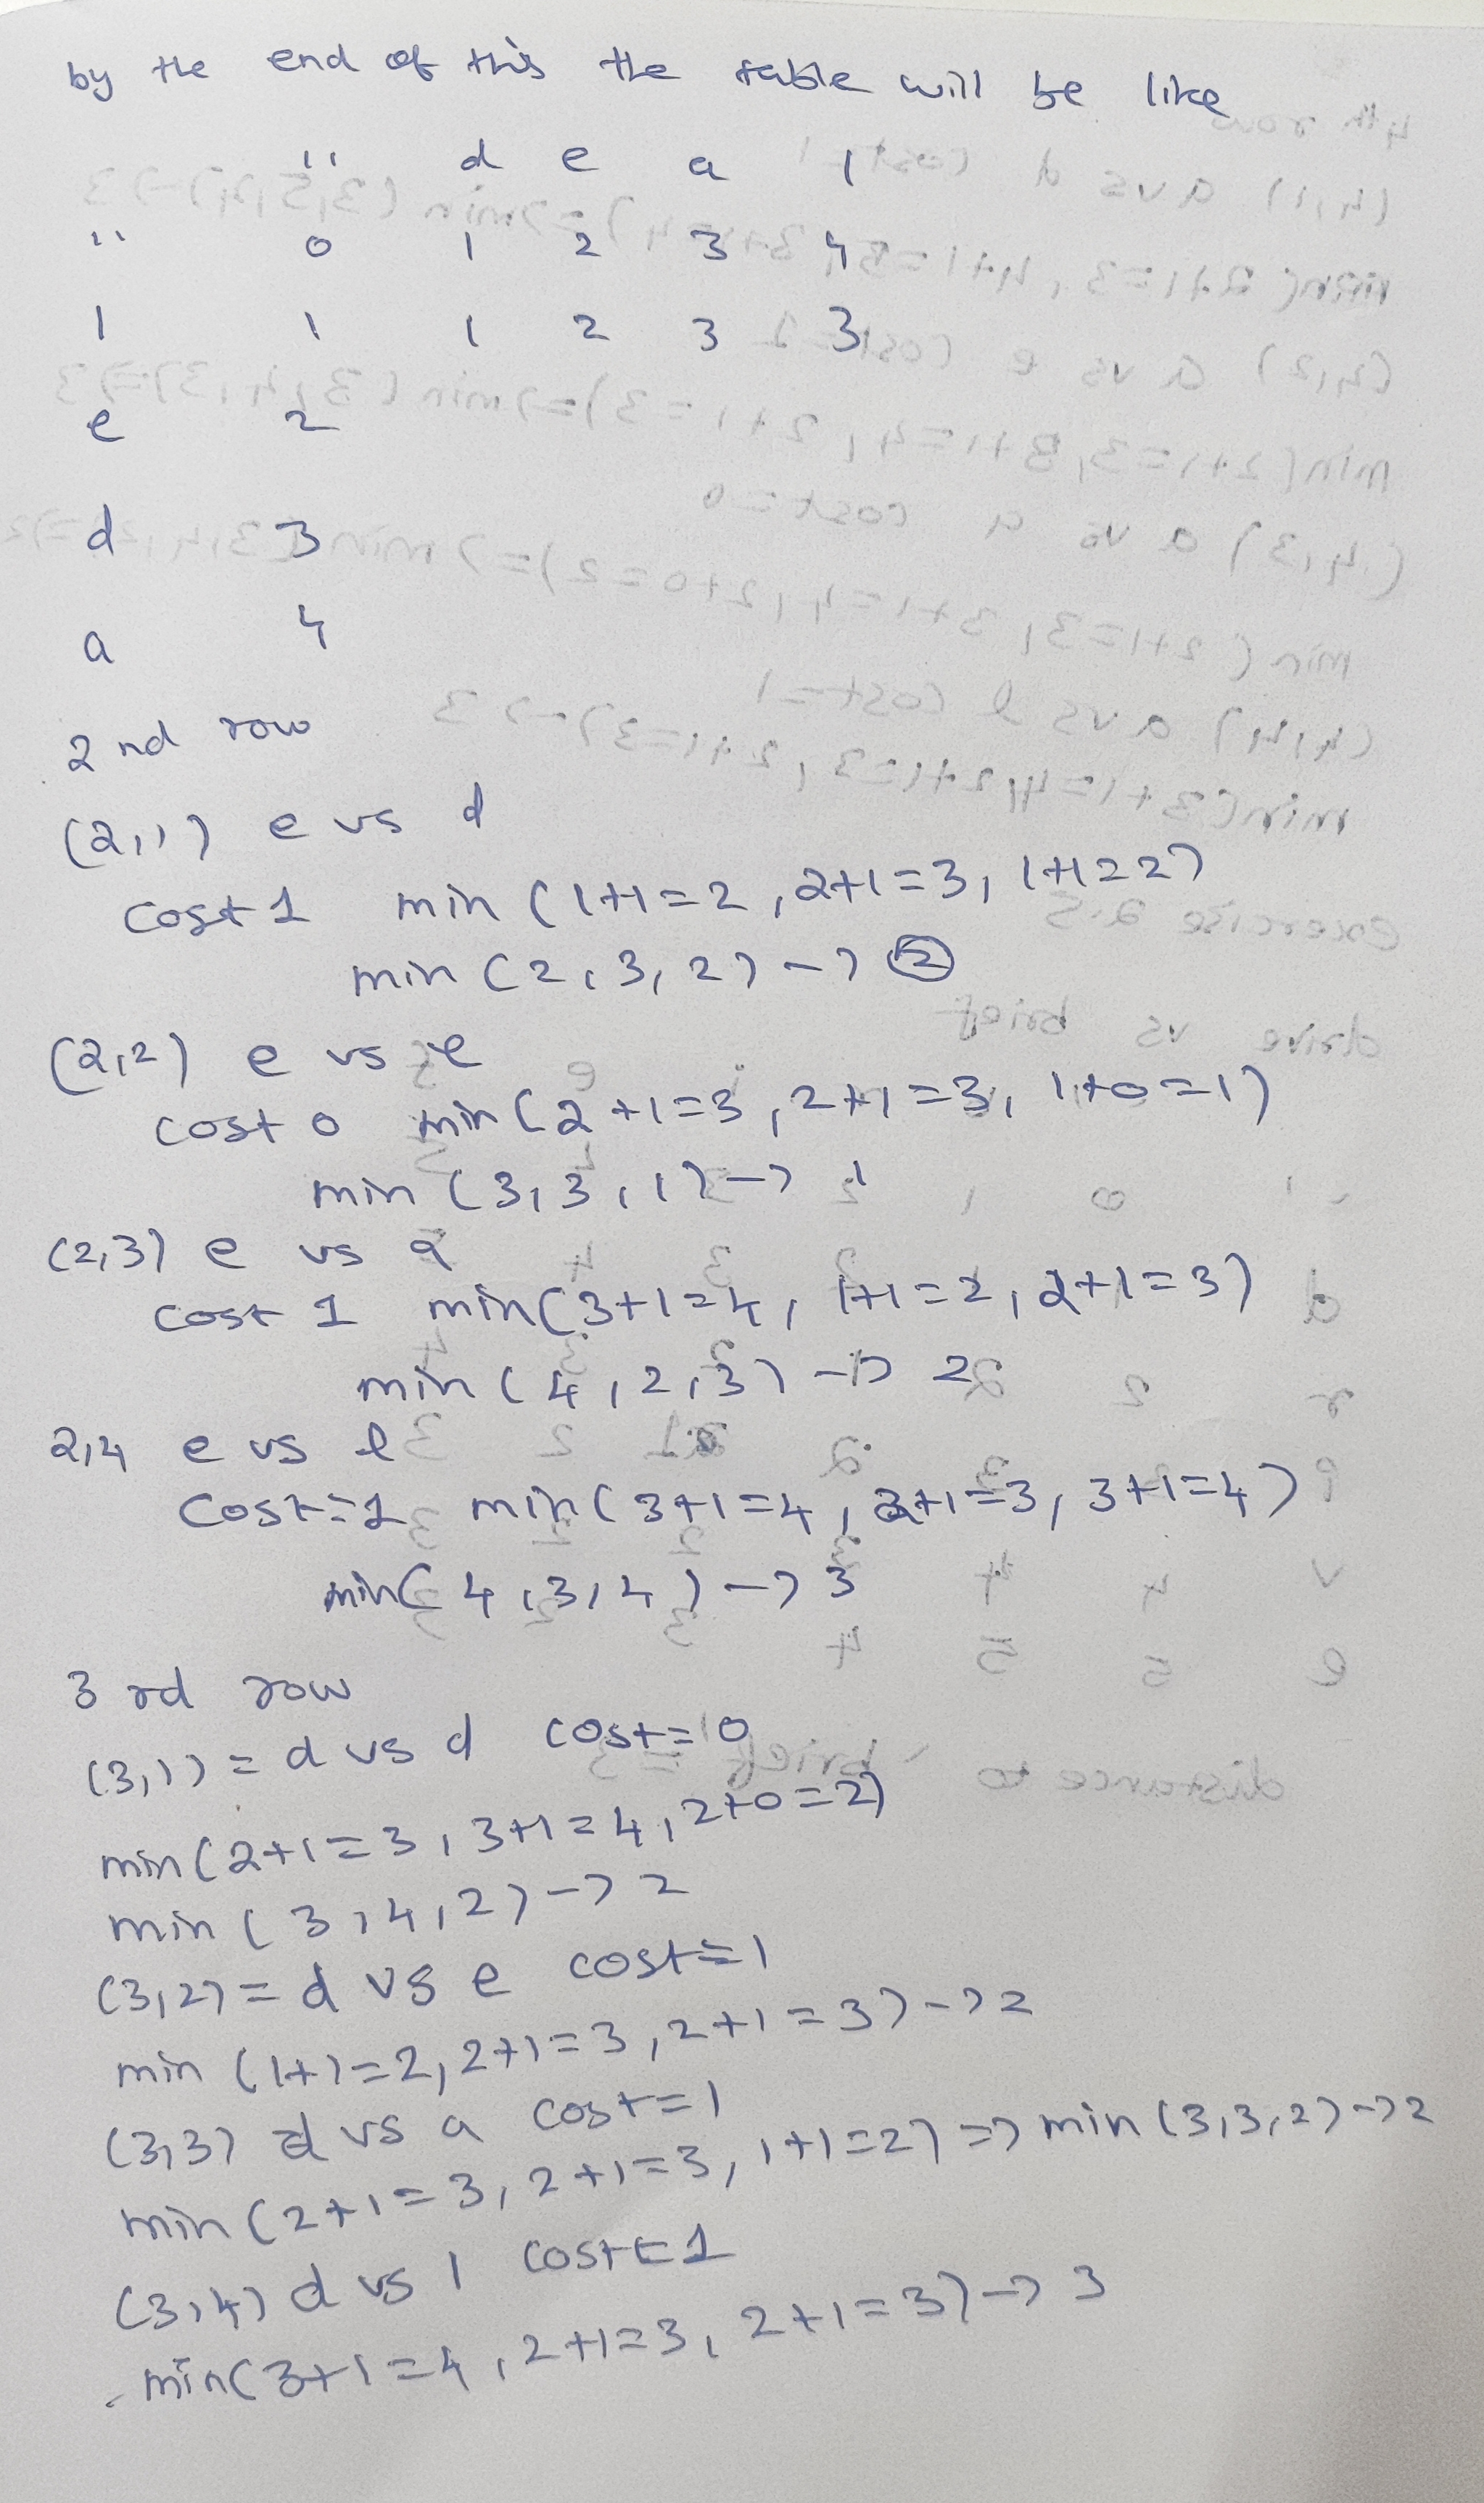 by the end of this the table will be like
" d e a l
" 0 1 2 3 4
l 1 1 2 3 3
e 2
d 3
a 4
2 nd row
(2,1) e vs d
cost 1 min (1+1=2, 2+1=3, 1+1=2)
min (2,3,2) -> 2
(2,2) e vs e
cost 0 min (2+1=3, 2+1=3, 1+0=1)
min (3,3,1) -> 1
(2,3) e vs a
cost 1 min(3+1=4, 1+1=2, 2+1=3)
min (4,2,3) -> 2
2,4 e vs l
Cost=1 min(3+1=4, 2+1=3, 3+1=4)
min(4,3,4) -> 3
3 rd row
(3,1) = d vs d cost=0
min(2+1=3, 3+1=4, 2+0=2)
min (3,4,2) -> 2
(3,2) = d vs e cost=1
min (1+1=2, 2+1=3, 2+1=3) -> 2
(3,3) d vs a cost=1
min (2+1=3, 2+1=3, 1+1=2) => min (3,3,2) -> 2
(3,4) d vs l cost=1
min(3+1=4, 2+1=3, 2+1=3) -> 3